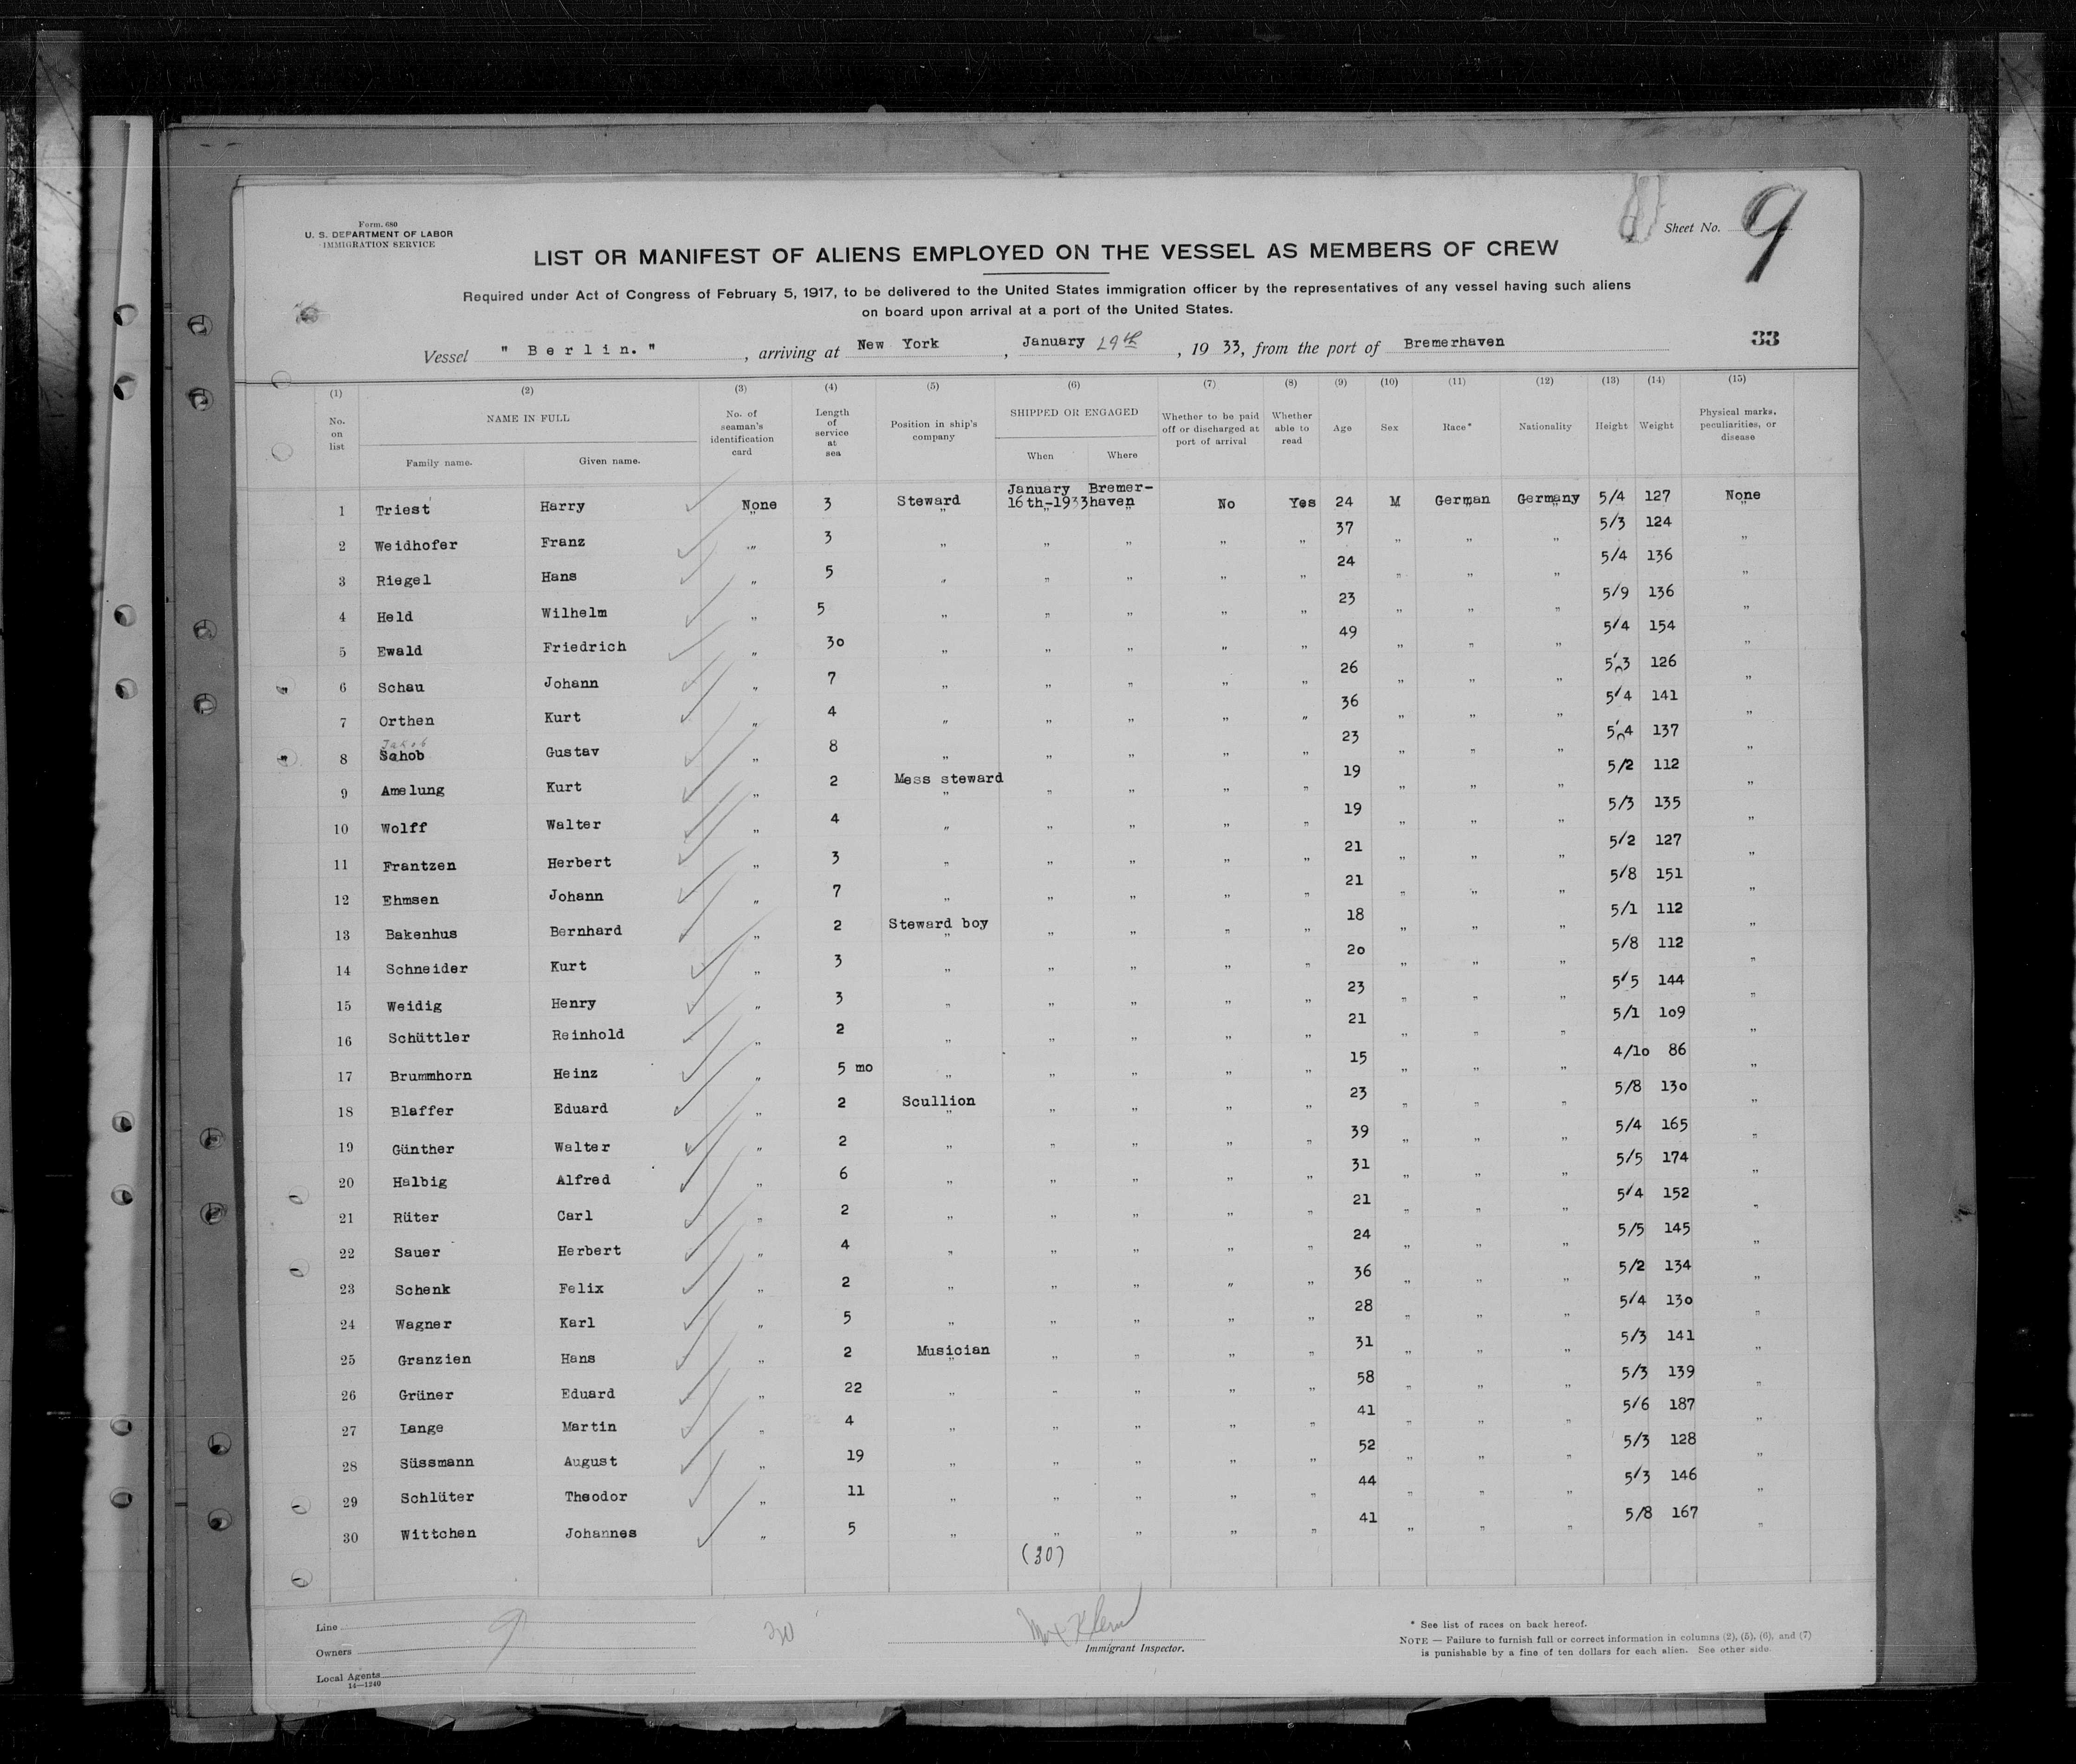 Form. 680
U. S. DEPARTMENT OF LABOR
IMMIGRATION SERVICE
Sheet No. 9
LIST OR MANIFEST OF ALIENS EMPLOYED ON THE VESSEL AS MEMBERS OF CREW
Required under Act of Congress of February 5, 1917, to be delivered to the United States immigration officer by the representatives of any vessel having such aliens
on board upon arrival at a port of the United States.
33
Vessel " Berlin. " , arriving at New York , January 29th , 1933, from the port of Bremerhaven
(1) (2) (3) (4) (5) (6) (7) (8) (9) (10) (11) (12) (13) (14) (15)
No. on list NAME IN FULL Family name. Given name. No. of seaman's identification card Length of service at sea Position in ship's company SHIPPED OR ENGAGED When Where Whether to be paid off or discharged at port of arrival Whether able to read Age Sex Race* Nationality Height Weight Physical marks, peculiarities, or disease
1 Triest Harry None 3 Steward January 16th-1933 Bremerhaven No Yes 24 M German Germany 5/4 127 None
2 Weidhofer Franz " 3 " " " " " 37 " " " 5/3 124 "
3 Riegel Hans " 5 " " " " " 24 " " " 5/4 136 "
4 Held Wilhelm " 5 " " " " " 23 " " " 5/9 136 "
5 Ewald Friedrich " 30 " " " " " 49 " " " 5/4 154 "
6 Schau Johann " 7 " " " " " 26 " " " 5/3 126 "
7 Orthen Kurt " 4 " " " " " 36 " " " 5/4 141 "
Jakob
8 Schob Gustav " 8 " " " " " 23 " " " 5/4 137 "
9 Amelung Kurt " 2 Mess steward " " " " 19 " " " 5/2 112 "
10 Wolff Walter " 4 " " " " " 19 " " " 5/3 135 "
11 Frantzen Herbert " 3 " " " " " 21 " " " 5/2 127 "
12 Ehmsen Johann " 7 " " " " " 21 " " " 5/8 151 "
13 Bakenhus Bernhard " 2 Steward boy " " " " 18 " " " 5/1 112 "
14 Schneider Kurt " 3 " " " " " 20 " " " 5/8 112 "
15 Weidig Henry " 3 " " " " " 23 " " " 5/5 144 "
16 Schüttler Reinhold " 2 " " " " " 21 " " " 5/1 109 "
17 Brummhorn Heinz " 5 mo " " " " " 15 " " " 4/10 86 "
18 Blaffer Eduard " 2 Scullion " " " " 23 " " " 5/8 130 "
19 Günther Walter " 2 " " " " " 39 " " " 5/4 165 "
20 Halbig Alfred " 6 " " " " " 31 " " " 5/5 174 "
21 Rüter Carl " 2 " " " " " 21 " " " 5/4 152 "
22 Sauer Herbert " 4 " " " " " 24 " " " 5/5 145 "
23 Schenk Felix " 2 " " " " " 36 " " " 5/2 134 "
24 Wagner Karl " 5 " " " " " 28 " " " 5/4 130 "
25 Granzien Hans " 2 Musician " " " " 31 " " " 5/3 141 "
26 Grüner Eduard " 22 " " " " " 58 " " " 5/3 139 "
27 Lange Martin " 4 " " " " " 41 " " " 5/6 187 "
28 Süssmann August " 19 " " " " " 52 " " " 5/3 128 "
29 Schlüter Theodor " 11 " " " " " 44 " " " 5/3 146 "
30 Wittchen Johannes " 5 " " " " " 41 " " " 5/8 167 "
(30)
Line
Owners
Local Agents
14—1240
9
30
Max Klein
Immigrant Inspector.
* See list of races on back hereof.
NOTE — Failure to furnish full or correct information in columns (2), (5), (6), and (7)
is punishable by a fine of ten dollars for each alien. See other side.